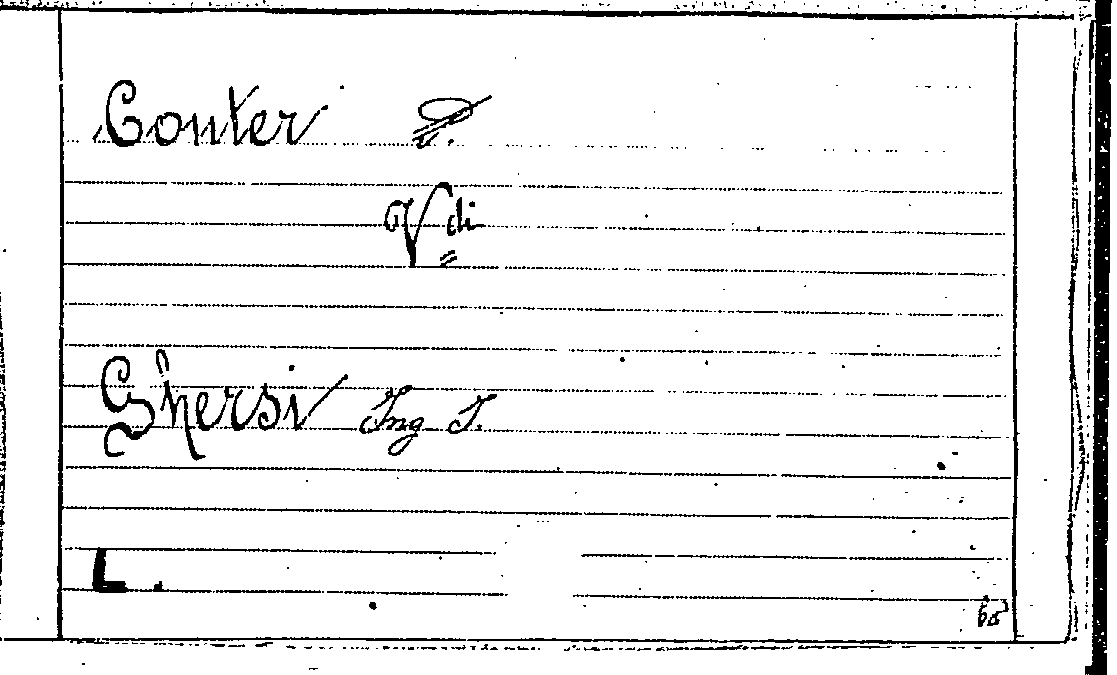 Conter
Vdi
Ghersi Ing I.
L.